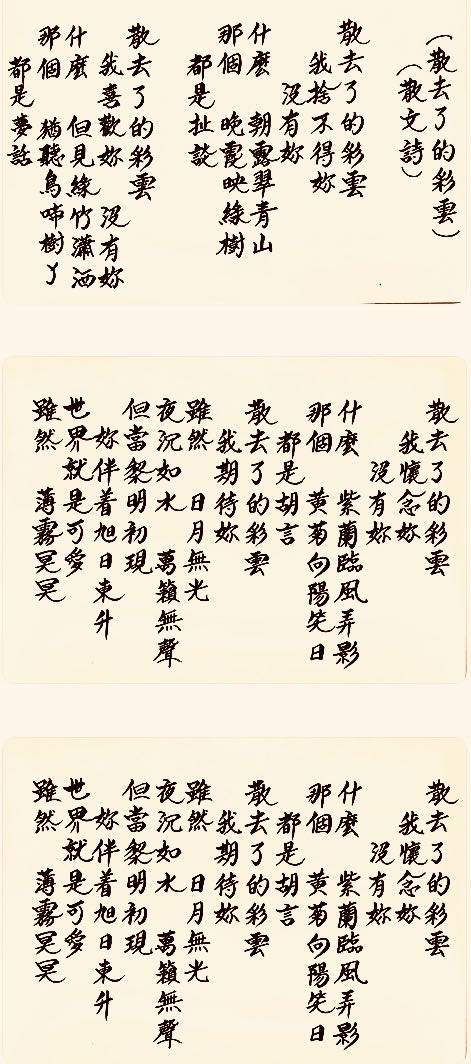 (散去了的彩雲)
(散文詩)
散去了的彩雲
我捨不得妳
沒有妳
什麼 朝露翠青山
那個 晚霞映綠樹
都是扯談
散去了的彩雲
我喜歡妳 沒有妳
什麼 但見綠竹瀟洒
那個 猶聽鳥啼樹丫
都是夢話
散去了的彩雲
我懷念妳
沒有妳
什麼 紫蘭臨風弄影
那個 黃菊向陽笑日
都是胡言
散去了的彩雲
我期待妳
雖然 日月無光
夜沉如水 萬籟無聲
但當黎明初現
妳伴着旭日東升
世界就是可愛
雖然 薄霧冥冥
散去了的彩雲
我懷念妳
沒有妳
什麼 紫蘭臨風弄影
那個 黃菊向陽笑日
都是胡言
散去了的彩雲
我期待妳
雖然 日月無光
夜沉如水 萬籟無聲
但當黎明初現
妳伴着旭日東升
世界就是可愛
雖然 薄霧冥冥